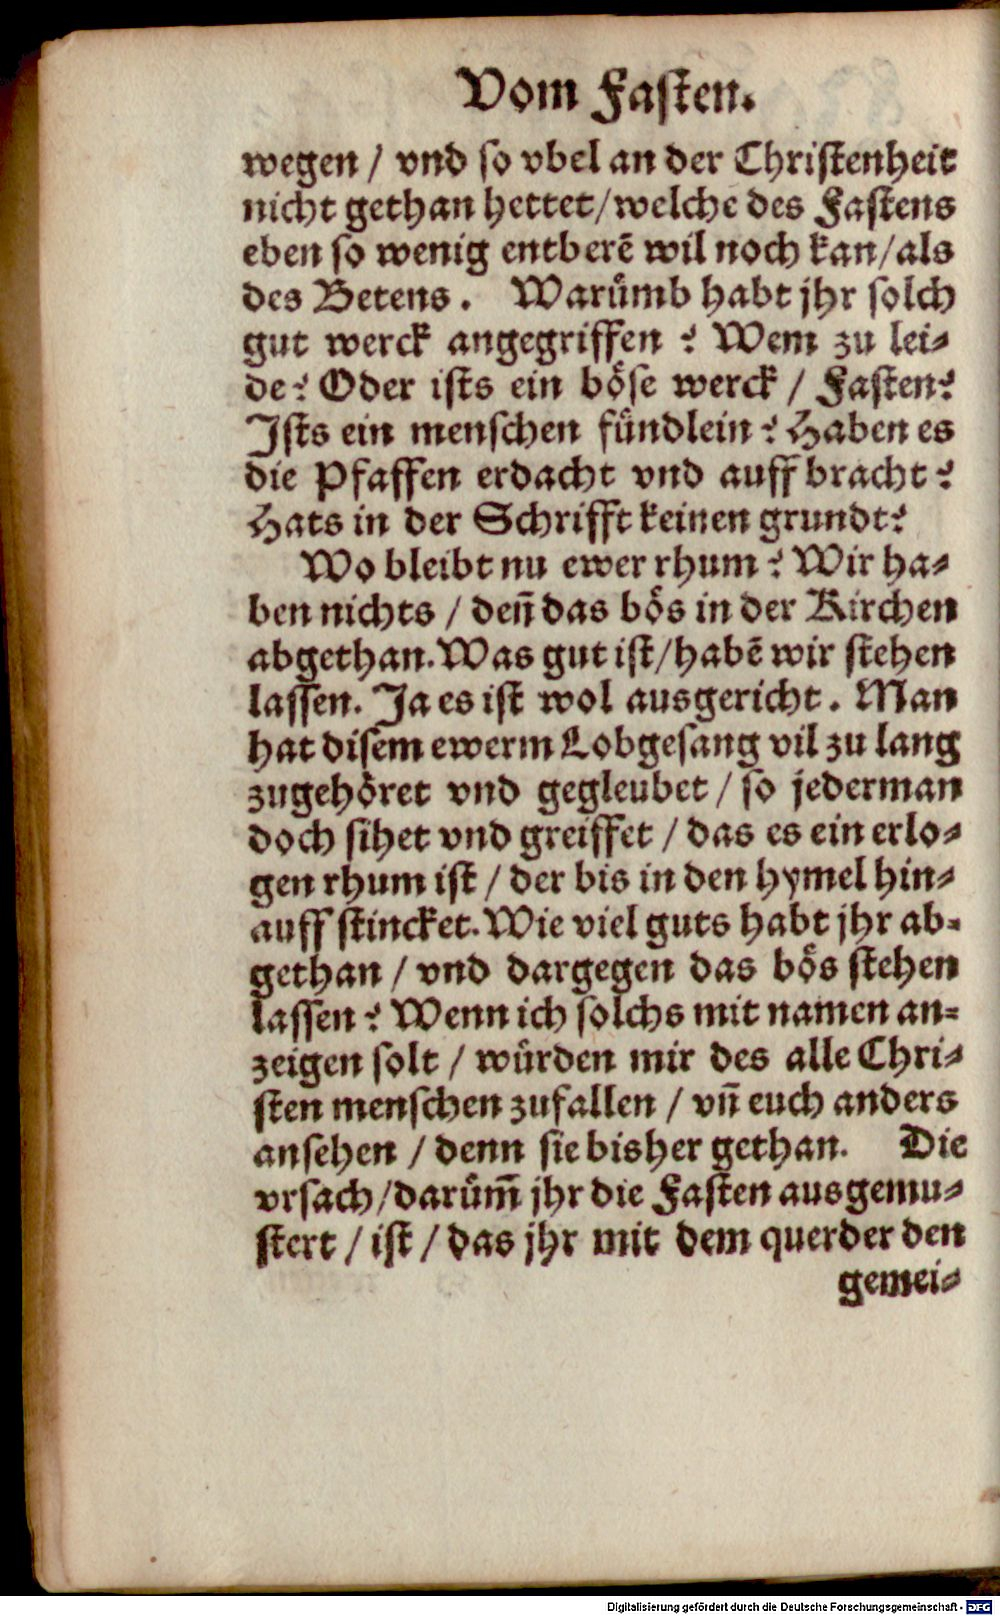 Vom Fasten.
wegen / vnd so vbel an der Christenheit
nicht gethan hettet/welche des Fastens
eben so wenig entberẽ wil noch kan/als
des Betens. Warümb habt jhr solch
gut werck angegriffen? Wem zu lei-
de? Oder ists ein böse werck / Fasten?
Jsts ein menschen fündlein? Haben es
die Pfaffen erdacht vnd auff bracht?
Hats in der Schrifft keinen grundt?
Wo bleibt nu ewer rhum? Wir ha-
ben nichts / deñ das bös in der Kirchen
abgethan. Was gut ist/habẽ wir stehen
lassen. Ja es ist wol ausgericht. Man
hat disem ewerm Lobgesang vil zu lang
zugehöret vnd gegleubet / so jederman
doch sihet vnd greiffet / das es ein erlo-
gen rhum ist / der bis in den hymel hin-
auff stincket. Wie viel guts habt jhr ab-
gethan / vnd dargegen das bös stehen
lassen? Wenn ich solchs mit namen an-
zeigen solt / würden mir des alle Chri-
sten menschen zufallen / vñ euch anders
ansehen / denn sie bisher gethan. Die
vrsach/darüm̃ jhr die Fasten ausgemu-
stert / ist / das jhr mit dem querder den
gemei-
Digitalisierung gefördert durch die Deutsche Forschungsgemeinschaft - DFG